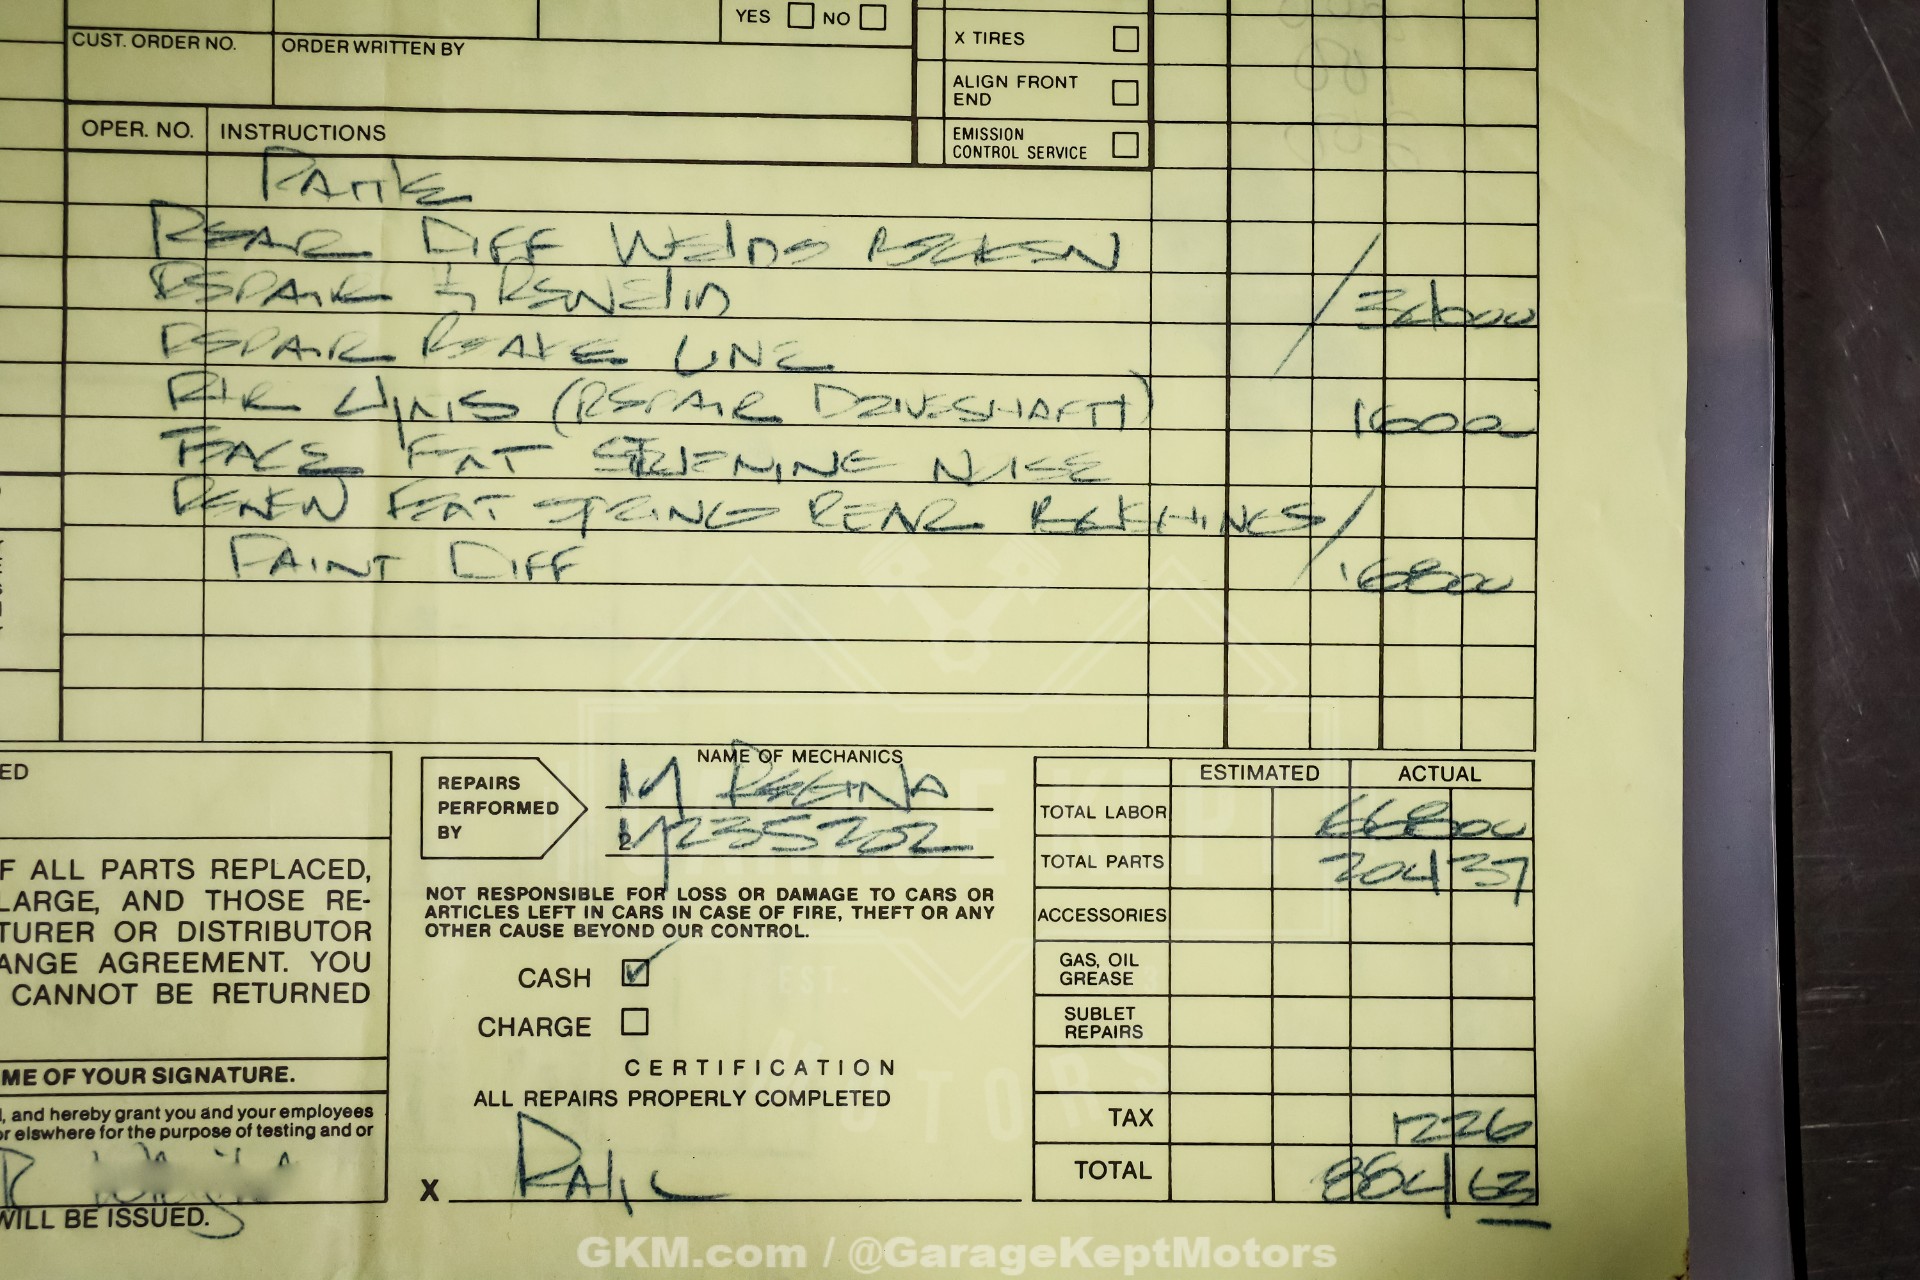 YES NO
X TIRES
CUST. ORDER NO. ORDER WRITTEN BY
ALIGN FRONT
END
OPER. NO. INSTRUCTIONS
EMISSION
CONTROL SERVICE
REAR DIFF WELDS BROKEN
REPAIR & REWELD 34000
REPAIR BRAKE LINE
R&R (REPAIR DRIVESHAFT) 16000
FRT NOISE
RENEW FRT SPRING REAR BUSHINGS
PAINT DIFF 16800
NAME OF MECHANICS
ED
REPAIRS
PERFORMED
BY
M REGINA
2 M235202
ESTIMATED ACTUAL
TOTAL LABOR 66800
TOTAL PARTS 204 37
ACCESSORIES
GAS, OIL
GREASE
SUBLET
REPAIRS
TAX 12 26
TOTAL 884 63
F ALL PARTS REPLACED,
LARGE, AND THOSE RE-
TURER OR DISTRIBUTOR
ANGE AGREEMENT. YOU
CANNOT BE RETURNED
NOT RESPONSIBLE FOR LOSS OR DAMAGE TO CARS OR
ARTICLES LEFT IN CARS IN CASE OF FIRE, THEFT OR ANY
OTHER CAUSE BEYOND OUR CONTROL.
CASH
CHARGE
CERTIFICATION
ALL REPAIRS PROPERLY COMPLETED
X
ME OF YOUR SIGNATURE.
, and hereby grant you and your employees
or elswhere for the purpose of testing and or
WILL BE ISSUED.
GKM.com / @GarageKeptMotors